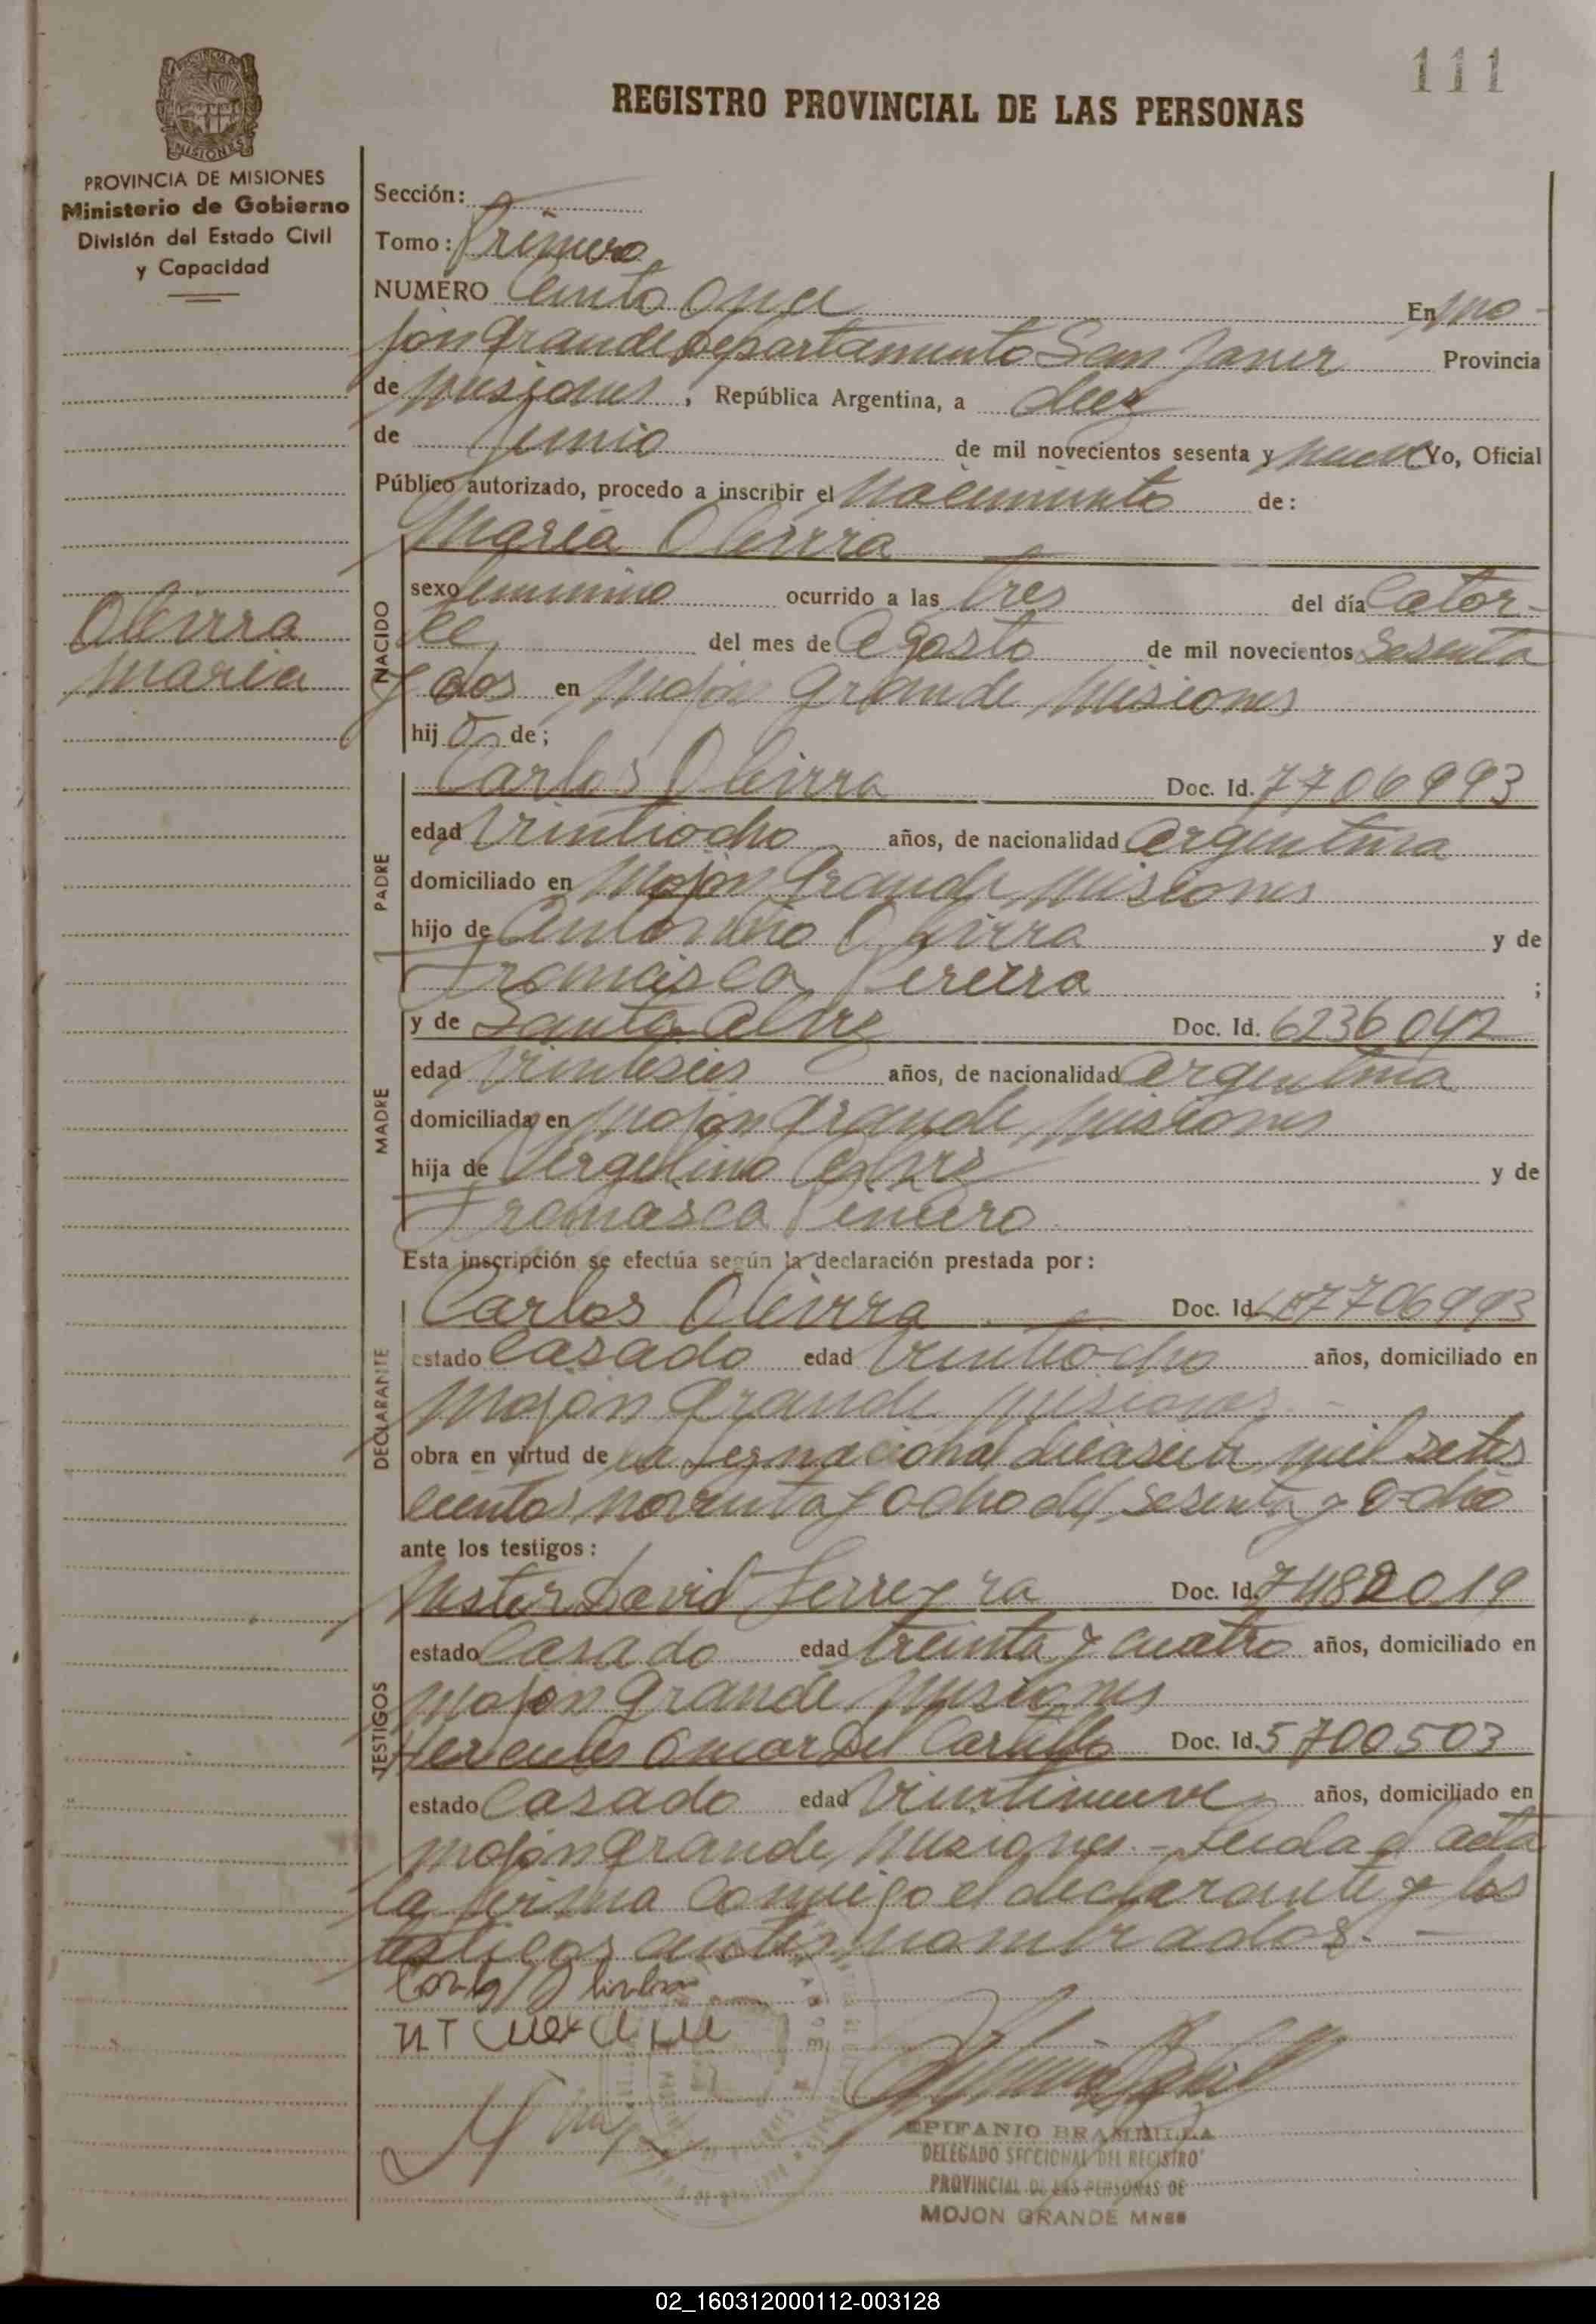 111
REGISTRO PROVINCIAL DE LAS PERSONAS
PROVINCIA DE MISIONES
Ministerio de Gobierno
División del Estado Civil
y Capacidad
Sección:
Tomo: Primero
NUMERO Ciento Once En Mo-
jon Grande Departamento San Javier Provincia
de Misiones, República Argentina, a diez
de Junio de mil novecientos sesenta y nueve Yo, Oficial
Público autorizado, procedo a inscribir el Nacimiento de:
Maria Oleirra
Oleirra
Maria
NACIDO
sexo femenino ocurrido a las tres del día Cator-
ce del mes de Agosto de mil novecientos Sesenta
y dos en Mojon Grande Misiones
hij a de;
PADRE
Carlos Oleirra Doc. Id. 7706993
edad Veintiocho años, de nacionalidad Argentina
domiciliado en Mojon Grande Misiones
hijo de Oleirra y de
Francisca Pereira ;
MADRE
y de Santa Alvez Doc. Id. 6236042
edad Veintiseis años, de nacionalidad Argentina
domiciliada en Mojon Grande Misiones
hija de Vergilino Alvez y de
Francisca Pineiro
Esta inscripción se efectúa según la declaración prestada por:
DECLARANTE
Carlos Oleirra Doc. Id. 7706993
estado Casado edad Veintiocho años, domiciliado en
Mojon Grande Misiones
obra en virtud de Ley nacional dieasiete mil sete
cientos noventa y ocho del sesenta y ocho
ante los testigos:
TESTIGOS
Nester David Ferreyra Doc. Id. 7482019
estado Casado edad treinta y cuatro años, domiciliado en
Mojon Grande Misiones
Hercules Omar Del Cartillo Doc. Id. 5700503
estado Casado edad Veintinueve años, domiciliado en
Mojon Grande Misiones - Leida el acta
la firma conmigo el declarante y los
testigos antes nombrados. -
EPIFANIO BRAMBILLA
DELEGADO SECCIONAL DEL REGISTRO
PROVINCIAL DE LAS PERSONAS DE
MOJON GRANDE MNES
02_160312000112-003128